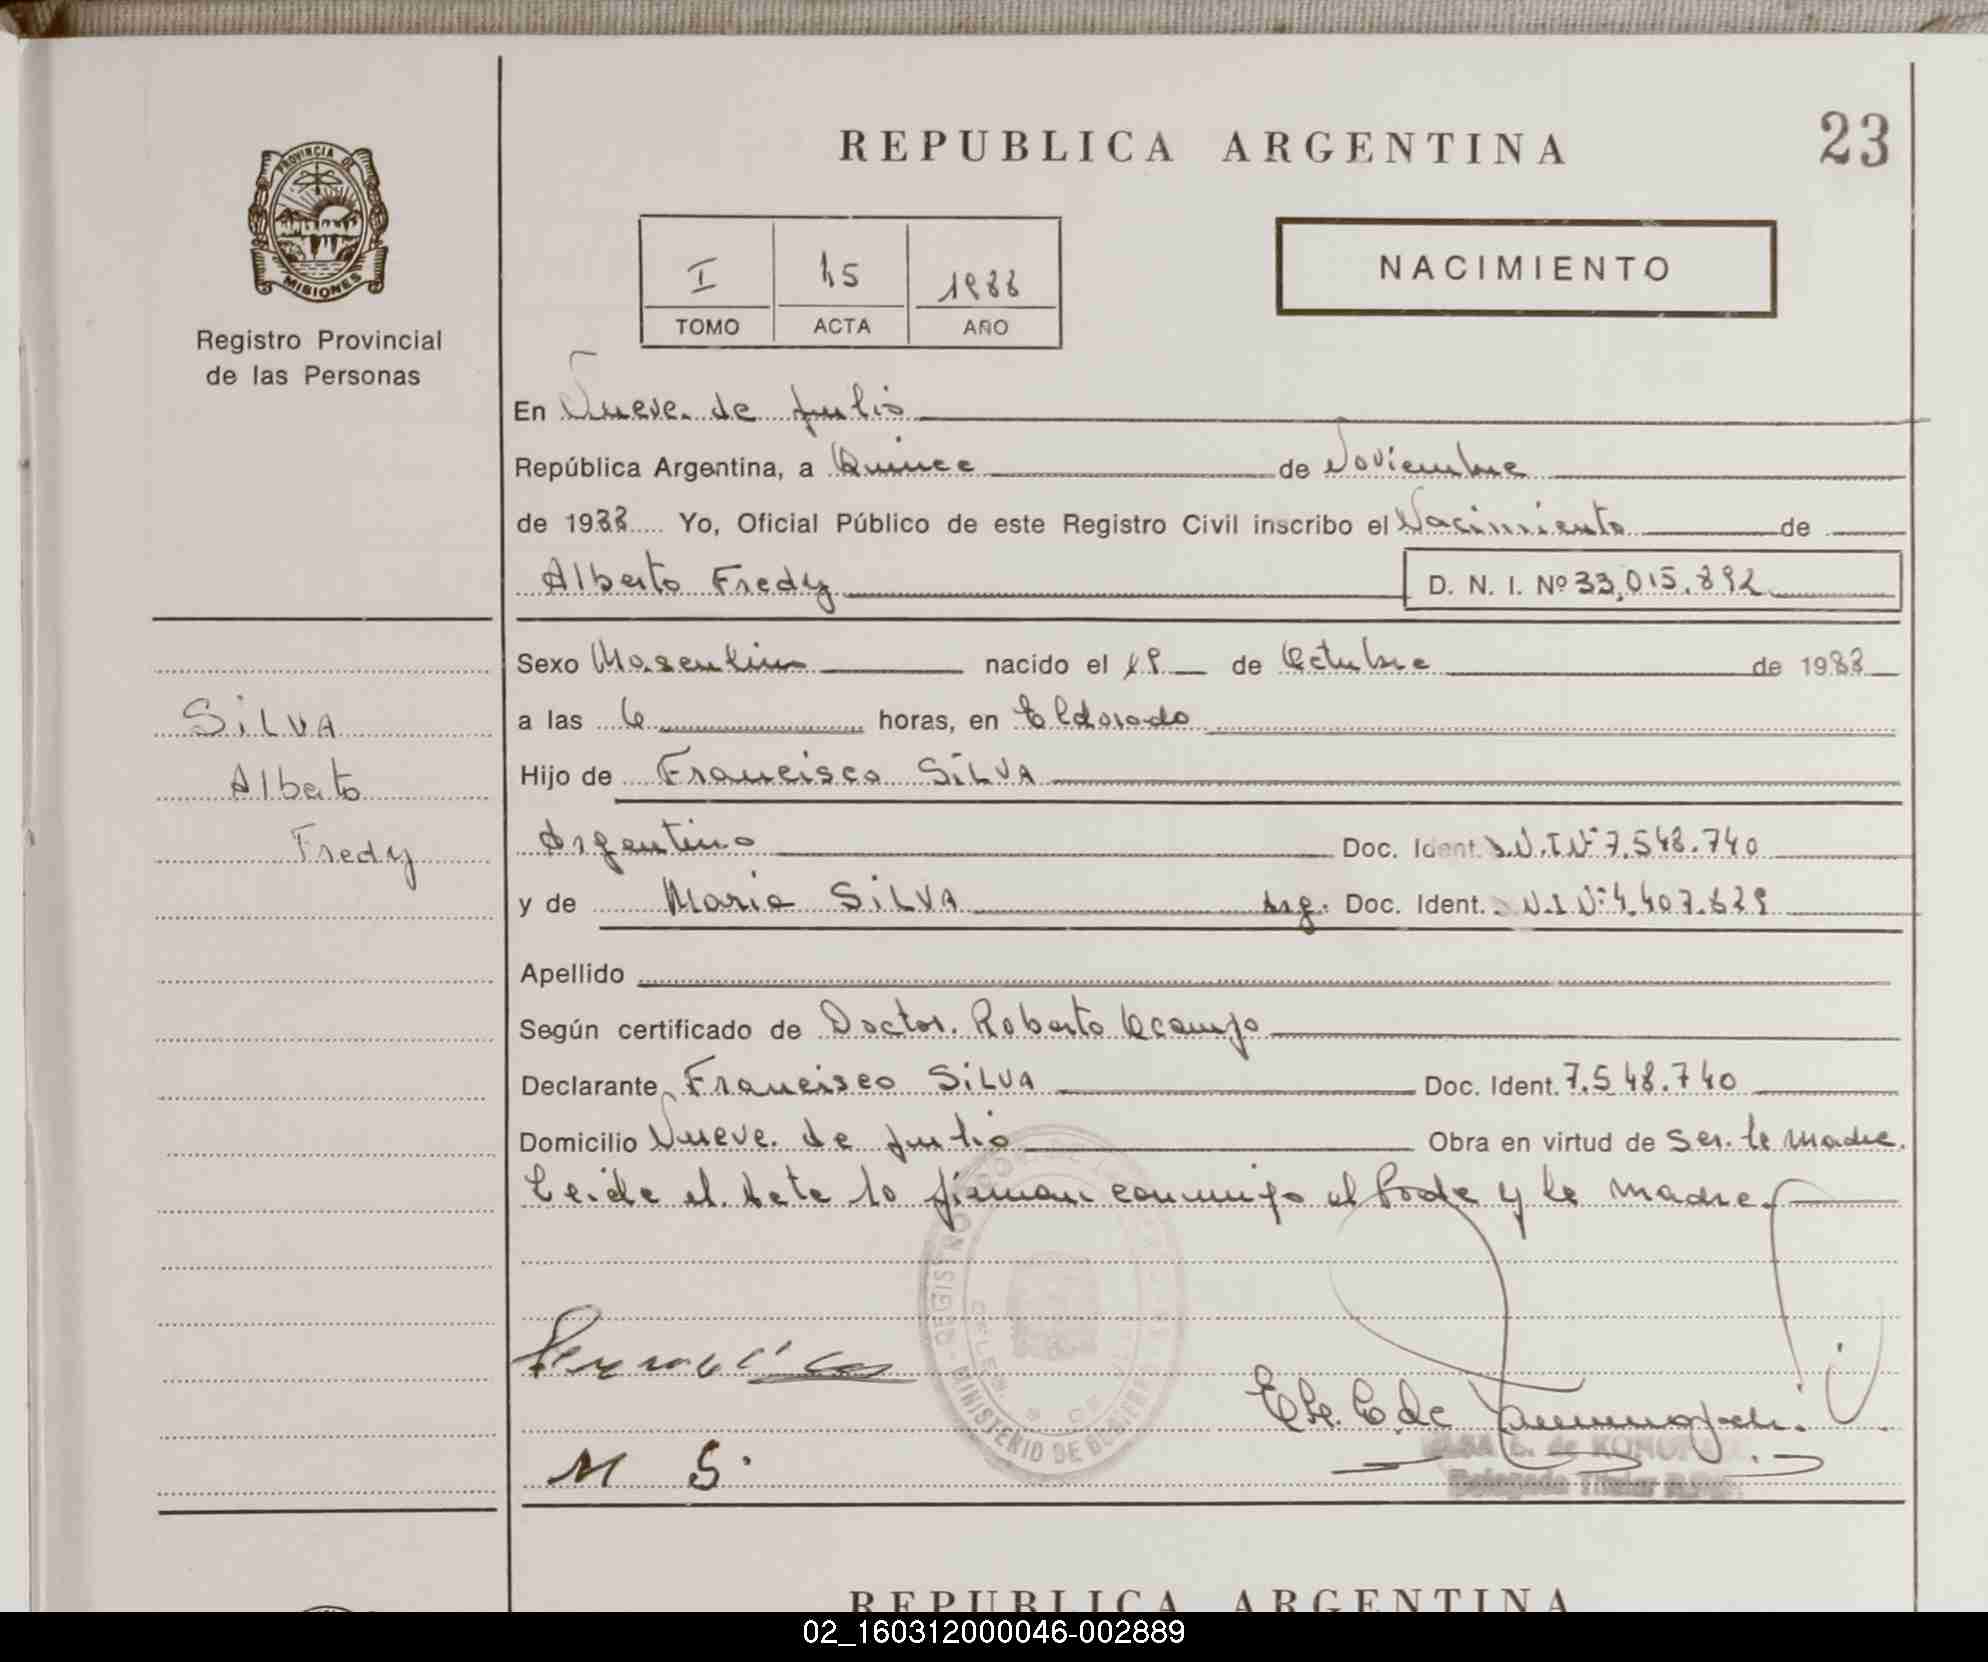 REPUBLICA ARGENTINA
23
PROVINCIA DE
MISIONES
Registro Provincial
de las Personas
I 45 1988
TOMO ACTA AÑO
NACIMIENTO
En Nueve de Julio
República Argentina, a Quince de Noviembre
de 1988 Yo, Oficial Público de este Registro Civil inscribo el Nacimiento de
Alberto Fredy D. N. I. Nº 33.015.892
Sexo Masculino nacido el 19 de Octubre de 1988
SILVA
Alberto
Fredy
a las 6 horas, en Eldorado
Hijo de Francisco SILVA
Argentino Doc. Ident. D.N.I Nº 7.548.740
y de Maria SILVA Arg. Doc. Ident. D.N.I Nº 4.407.629
Apellido
Según certificado de Doctor. Roberto Ocampo
Declarante Francisco SILVA Doc. Ident. 7.548.740
Domicilio Nueve de Julio Obra en virtud de ser la madre.
Leida el Acta la firman conmigo el Padre y la madre.
MINISTERIO DE
M S.
Delegada Titular
REPUBLICA ARGENTINA
02_160312000046-002889